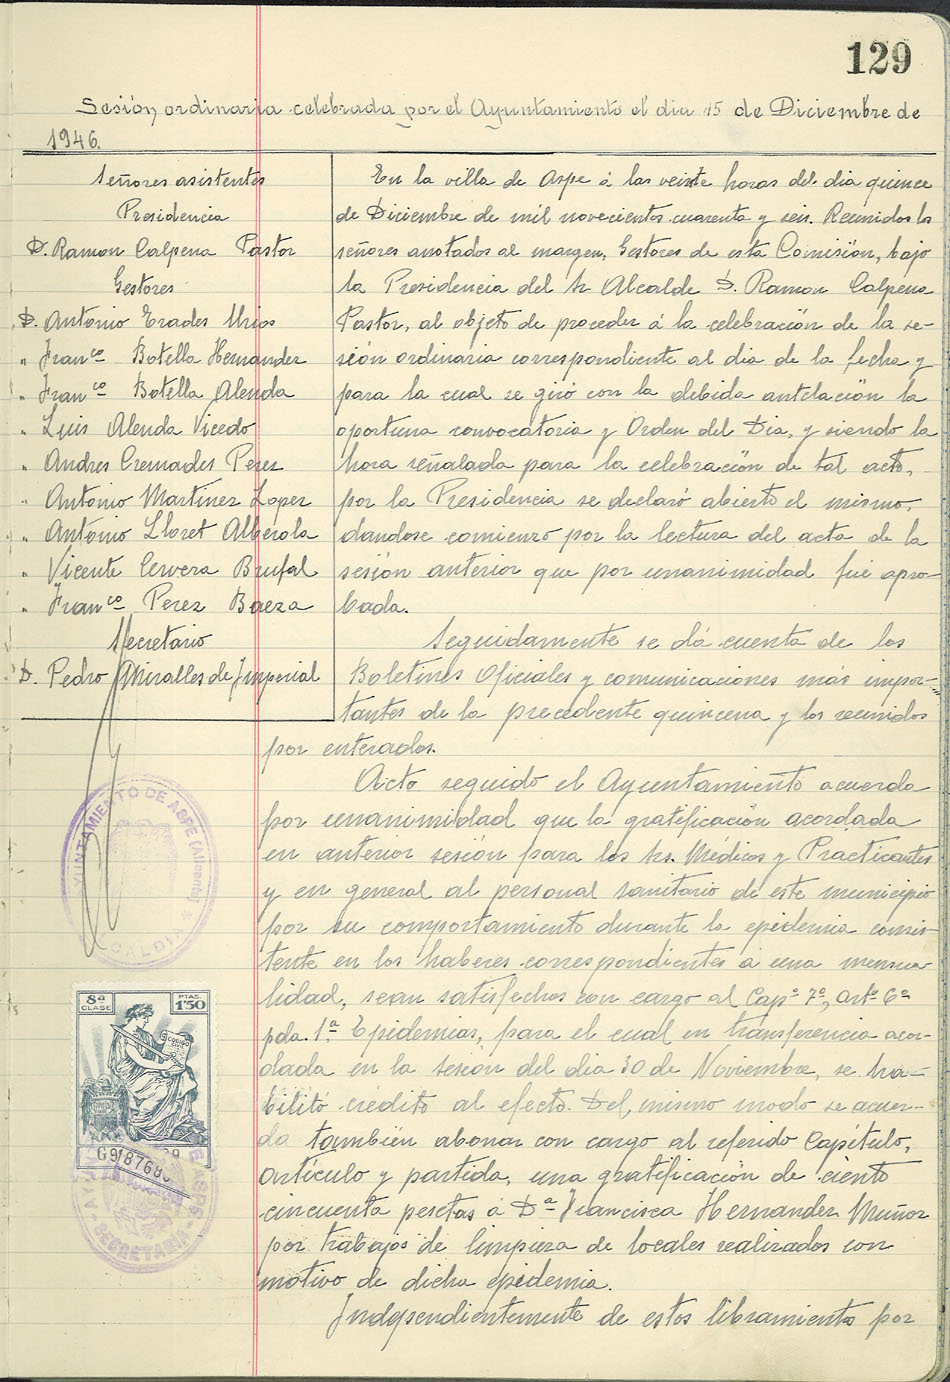 129
Sesión ordinaria celebrada por el Ayuntamiento el dia 15 de Diciembre de
1946.
Señores asistentes
Presidencia
D. Ramon Calpena Pastor
Gestores
D. Antonio Erades Urios
" Franco Botella Hernandez
" Franco Botella Alenda
" Luis Alenda Vicedo
" Andres Cremades Perez
" Antonio Martinez Lopez
" Antonio Lloret Alberola
" Vicente Cervera Brufal
" Franco Perez Baeza
Secretario
D. Pedro Miralles de Imperial
En la villa de Aspe á las veinte horas del dia quince
de Diciembre de mil novecientos cuarenta y seis. Reunidos los
señores anotados al margen, Gestores de esta Comisión, bajo
la Presidencia del Sr Alcalde D. Ramon Calpena
Pastor, al objeto de proceder á la celebración de la se-
sión ordinaria correspondiente al dia de la fecha y
para la cual se giró con la debida antelación la
oportuna convocatoria y Orden del Dia, y siendo la
hora señalada para la celebración de tal acto,
por la Presidencia se declaró abierto el mismo,
dandose comienzo por la lectura del acta de la
sesión anterior que por unanimidad fué apro-
bada.
Seguidamente se dá cuenta de los
Boletines Oficiales y comunicaciones más impor-
tantes de la precedente quincena y los reunidos
por enterados.
Acto seguido el Ayuntamiento acuerda
por unanimidad que la gratificación acordada
en anterior sesión para los Srs. Médicos y Practicantes
y en general al personal sanitario de este municipio
por su comportamiento durante la epidemia consis-
tente en los haberes correspondientes á una mensua-
lidad, sean satisfechos con cargo al Capº 7º, artº 6º
pda. 1ª Epidemias, para el cual en transferencia acor-
dada en la sesión del dia 30 de Noviembre, se ha-
bilitó crédito al efecto. Del mismo modo se acuer-
da también abonar con cargo al referido Capítulo,
artículo y partida, una gratificación de ciento
cincuenta pesetas á Dª Francisca Hernandez Muñoz
por trabajos de limpieza de locales realizados con
motivo de dicha epidemia.
Independientemente de estos libramiento por
AYUNTAMIENTO DE ASPE (Alicante)
ALCALDIA
8ª CLASE
PTAS. 1'50
CODIGO
SECRETARIA